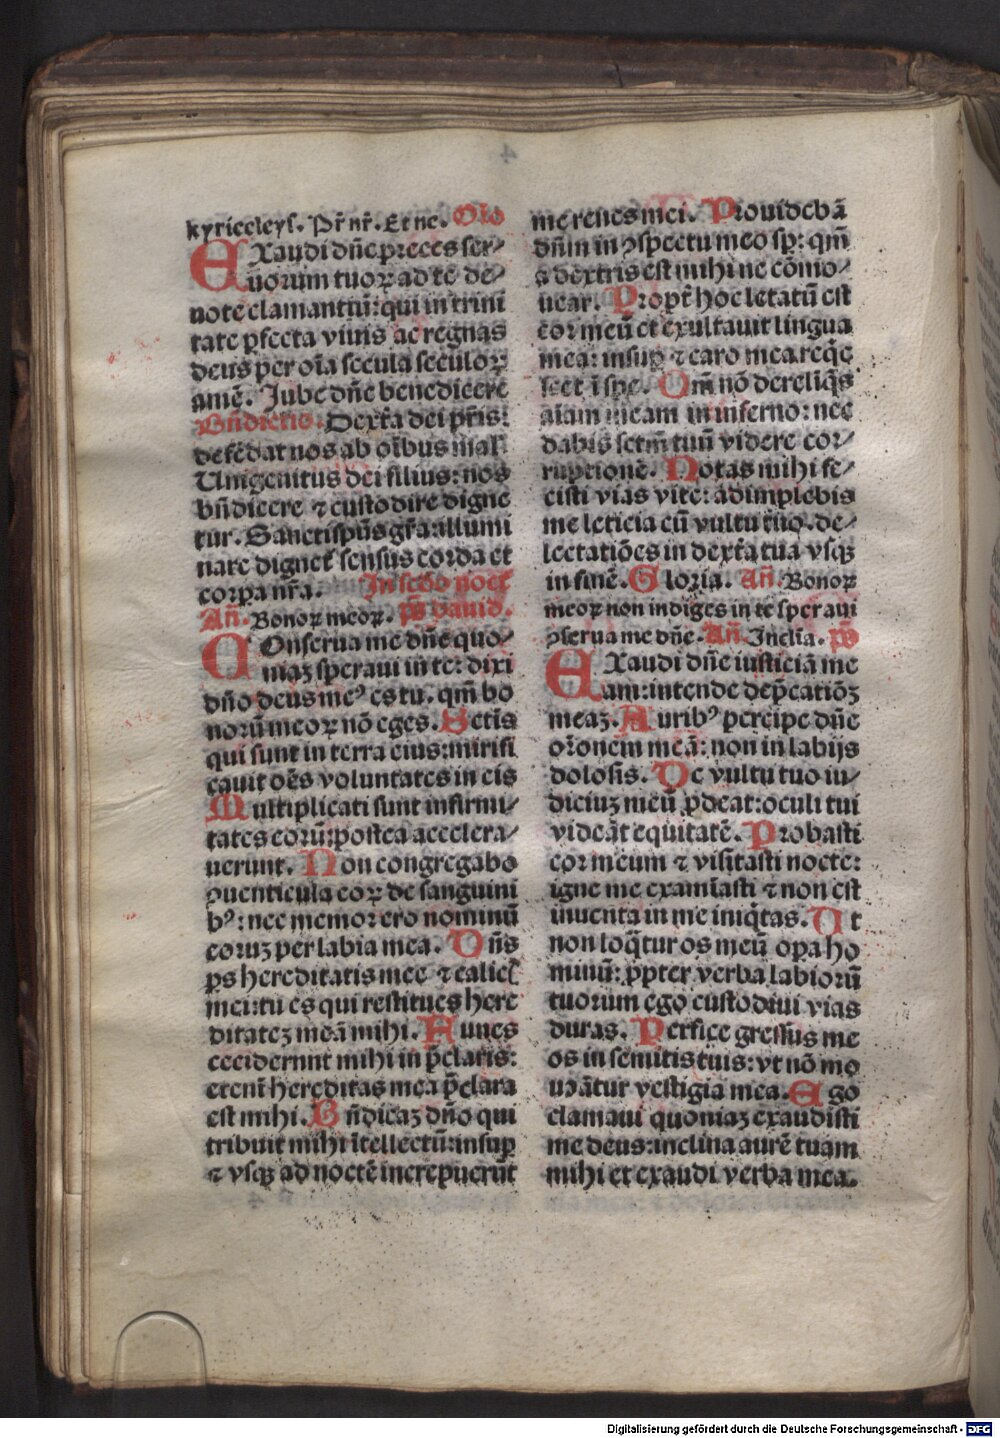 kyrieeleyſ. Pr̄ nr̄. Et ne. Oĺo
EXaudi dn̄e preces ser⸗
uorum tuoꝝ ad te de⸗
uote clamantiū: qui in trini
tate ꝑfecta viuis ac regnas
deus per oīa secula seculoꝝ
amē. Jube dn̄e benedicere
Bn̄dictio. Dext̄a dei pr̄is:
defēdat nos ab oībus mal̕
Unigenitus dei filius: nos
bn̄dicere ⁊ custodire digne
tur. Sanctispūs gr̄a: illumi
nare dignet̕ sensus corda et
corpa nr̄a. In scd̄o noct̕
An̄. Bonoꝝ meoꝝ. ps̄ dauid.
COnserua me dn̄e quo⸗
niaꝫ speraui in te: dixi
dn̄o deus meꝰ es tu. qm̄ bo
norū meoꝝ nō eges. Sctis
qui sunt in terra eius: mirifi
cauit oēs voluntates in eis
Multiplicati sunt infirmi⸗
tates eorū: postea accelera⸗
uerunt. Non congregabo
ꝯuenticula eoꝝ de sanguini
bꝰ: nec memor ero nominū
eoruꝫ per labia mea. Dn̄s
ps hereditatis mee ⁊ calic̕
mei: tu es qui restitues here
ditateꝫ meā mihi. Funes
ceciderunt mihi in p̄claris:
eteni̅ hereditas mea p̄clara
est mihi. Bn̄dicaꝫ dn̄o qui
tribuit mihi ītellectū: insuꝑ
⁊ vsqꝫ ad noctē increpuerūt
me renes mei. Prouidebā
dn̄m in ꝯspectu meo sꝑ: qm̄
a dextris est mihi ne cōmo⸗
uear. Propt̕ hoc letatū est
cor meū et exultauit lingua
mea: insuꝑ ⁊ caro mea reqͥe
scet ī spe. Qm̄ nō dereliqͥs
aīam meam in inferno: nec
dabis sctm̄ tuū videre cor⸗
ruptionē. Notas mihi fe⸗
cisti vias vite: adimplebis
me leticia cū vultu tuo. de⸗
lectatiōes in dext̄a tua vsqꝫ
in finē. Gloria. An̄. Bonoꝝ
meoꝝ non indiges in te speraui
ꝯserua me dn̄e. An̄. Inclīa. ps̄
EXaudi dn̄e iusticiā me
am: intende dep̄catiōꝫ
meaꝫ. Auribꝰ percipe dn̄e
or̄onem meā: non in labijs
dolosis. De vultu tuo iu⸗
diciuꝫ meū ꝓdeat: oculi tui
videāt equitatē. Probasti
cor meum ⁊ visitasti nocte:
igne me examīasti ⁊ non est
inuenta in me iniqͥtas. Ut
non loqͣtur os meū oꝑa ho
minū: ꝓpter verba labiorū
tuorum ego custodiui vias
duras. Perfice gressus me
os in semitis tuis: vt nō mo
ueātur vestigia mea. Ego
clamaui quoniaꝫ exaudisti
me deus: inclina aurē tuam
mihi et exaudi verba mea.
Digitalisierung gefördert durch die Deutsche Forschungsgemeinschaft - DFG